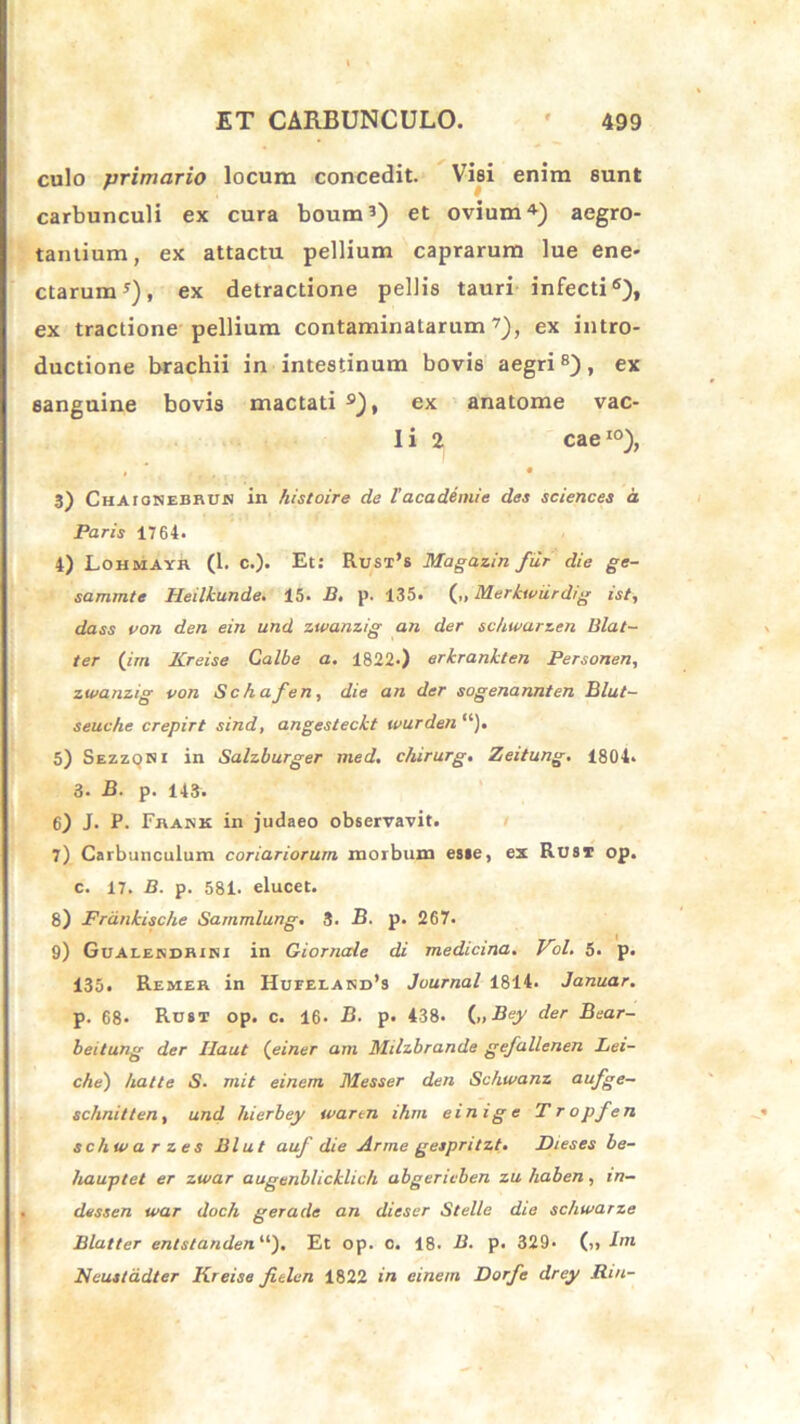 ET CARBUNCULO. 499
culo primario locum concedit. Visi enim sunt
carbunculi ex cura boum³) et ovium⁴) aegro-
tantium, ex attactu pellium caprarum lue ene-
ctarum⁵), ex detractione pellis tauri infecti⁶),
ex tractione pellium contaminatarum⁷), ex intro-
ductione brachii in intestinum bovis aegri⁸), ex
sanguine bovis mactati⁹), ex anatome vac-
Ii 2 cae¹⁰),
3) CHAIGNEBRUN in histoire de l'académie des sciences à
Paris 1764.
4) LOHMAYR (l. c.). Et: RUST'S Magazin für die ge-
sammte Heilkunde. 15. B. p. 135. („Merkwürdig ist,
dass von den ein und zwanzig an der schwarzen Blat-
ter (im Kreise Calbe a. 1822.) erkrankten Personen,
zwanzig von Schafen, die an der sogenannten Blut-
seuche crepirt sind, angesteckt wurden“).
5) SEZZONI in Salzburger med. chirurg. Zeitung. 1804.
3. B. p. 143.
6) J. P. FRANK in judaeo observavit.
7) Carbunculum coriariorum morbum esse, ex RUST op.
c. 17. B. p. 581. elucet.
8) Fränkische Sammlung. 3. B. p. 267.
9) GUALENDRINI in Giornale di medicina. Vol. 5. p.
135. REMER in HUFELAND'S Journal 1814. Januar.
p. 68. RUST op. c. 16. B. p. 438. („Bey der Bear-
beitung der Haut (einer am Milzbrande gefallenen Lei-
che) hatte S. mit einem Messer den Schwanz aufge-
schnitten, und hierbey waren ihm einige Tropfen
schwarzes Blut auf die Arme gespritzt. Dieses be-
hauptet er zwar augenblicklich abgerieben zu haben, in-
dessen war doch gerade an dieser Stelle die schwarze
Blatter entstanden“). Et op. c. 18. B. p. 329. („Im
Neustädter Kreise fielen 1822 in einem Dorfe drey Rin-